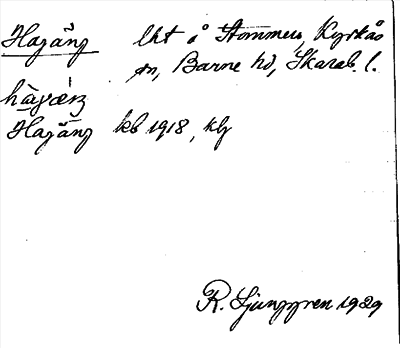 Hagäng lht å Stommen, Kyrkås
sn, Barne hd, Skarab. l.
hàgæ̀ŋ
Hagäng kb 1918, klj
R. Ljunggren 1929